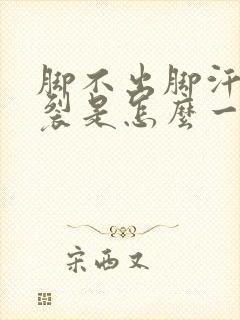 脚不出脚汗
裂是怎麼一
宋西又